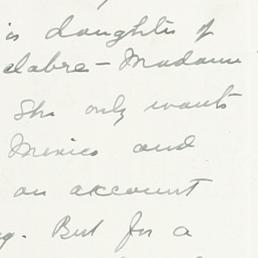 is daughter of
clabre - Madam
She only wants
Mexico and
on account
But for a